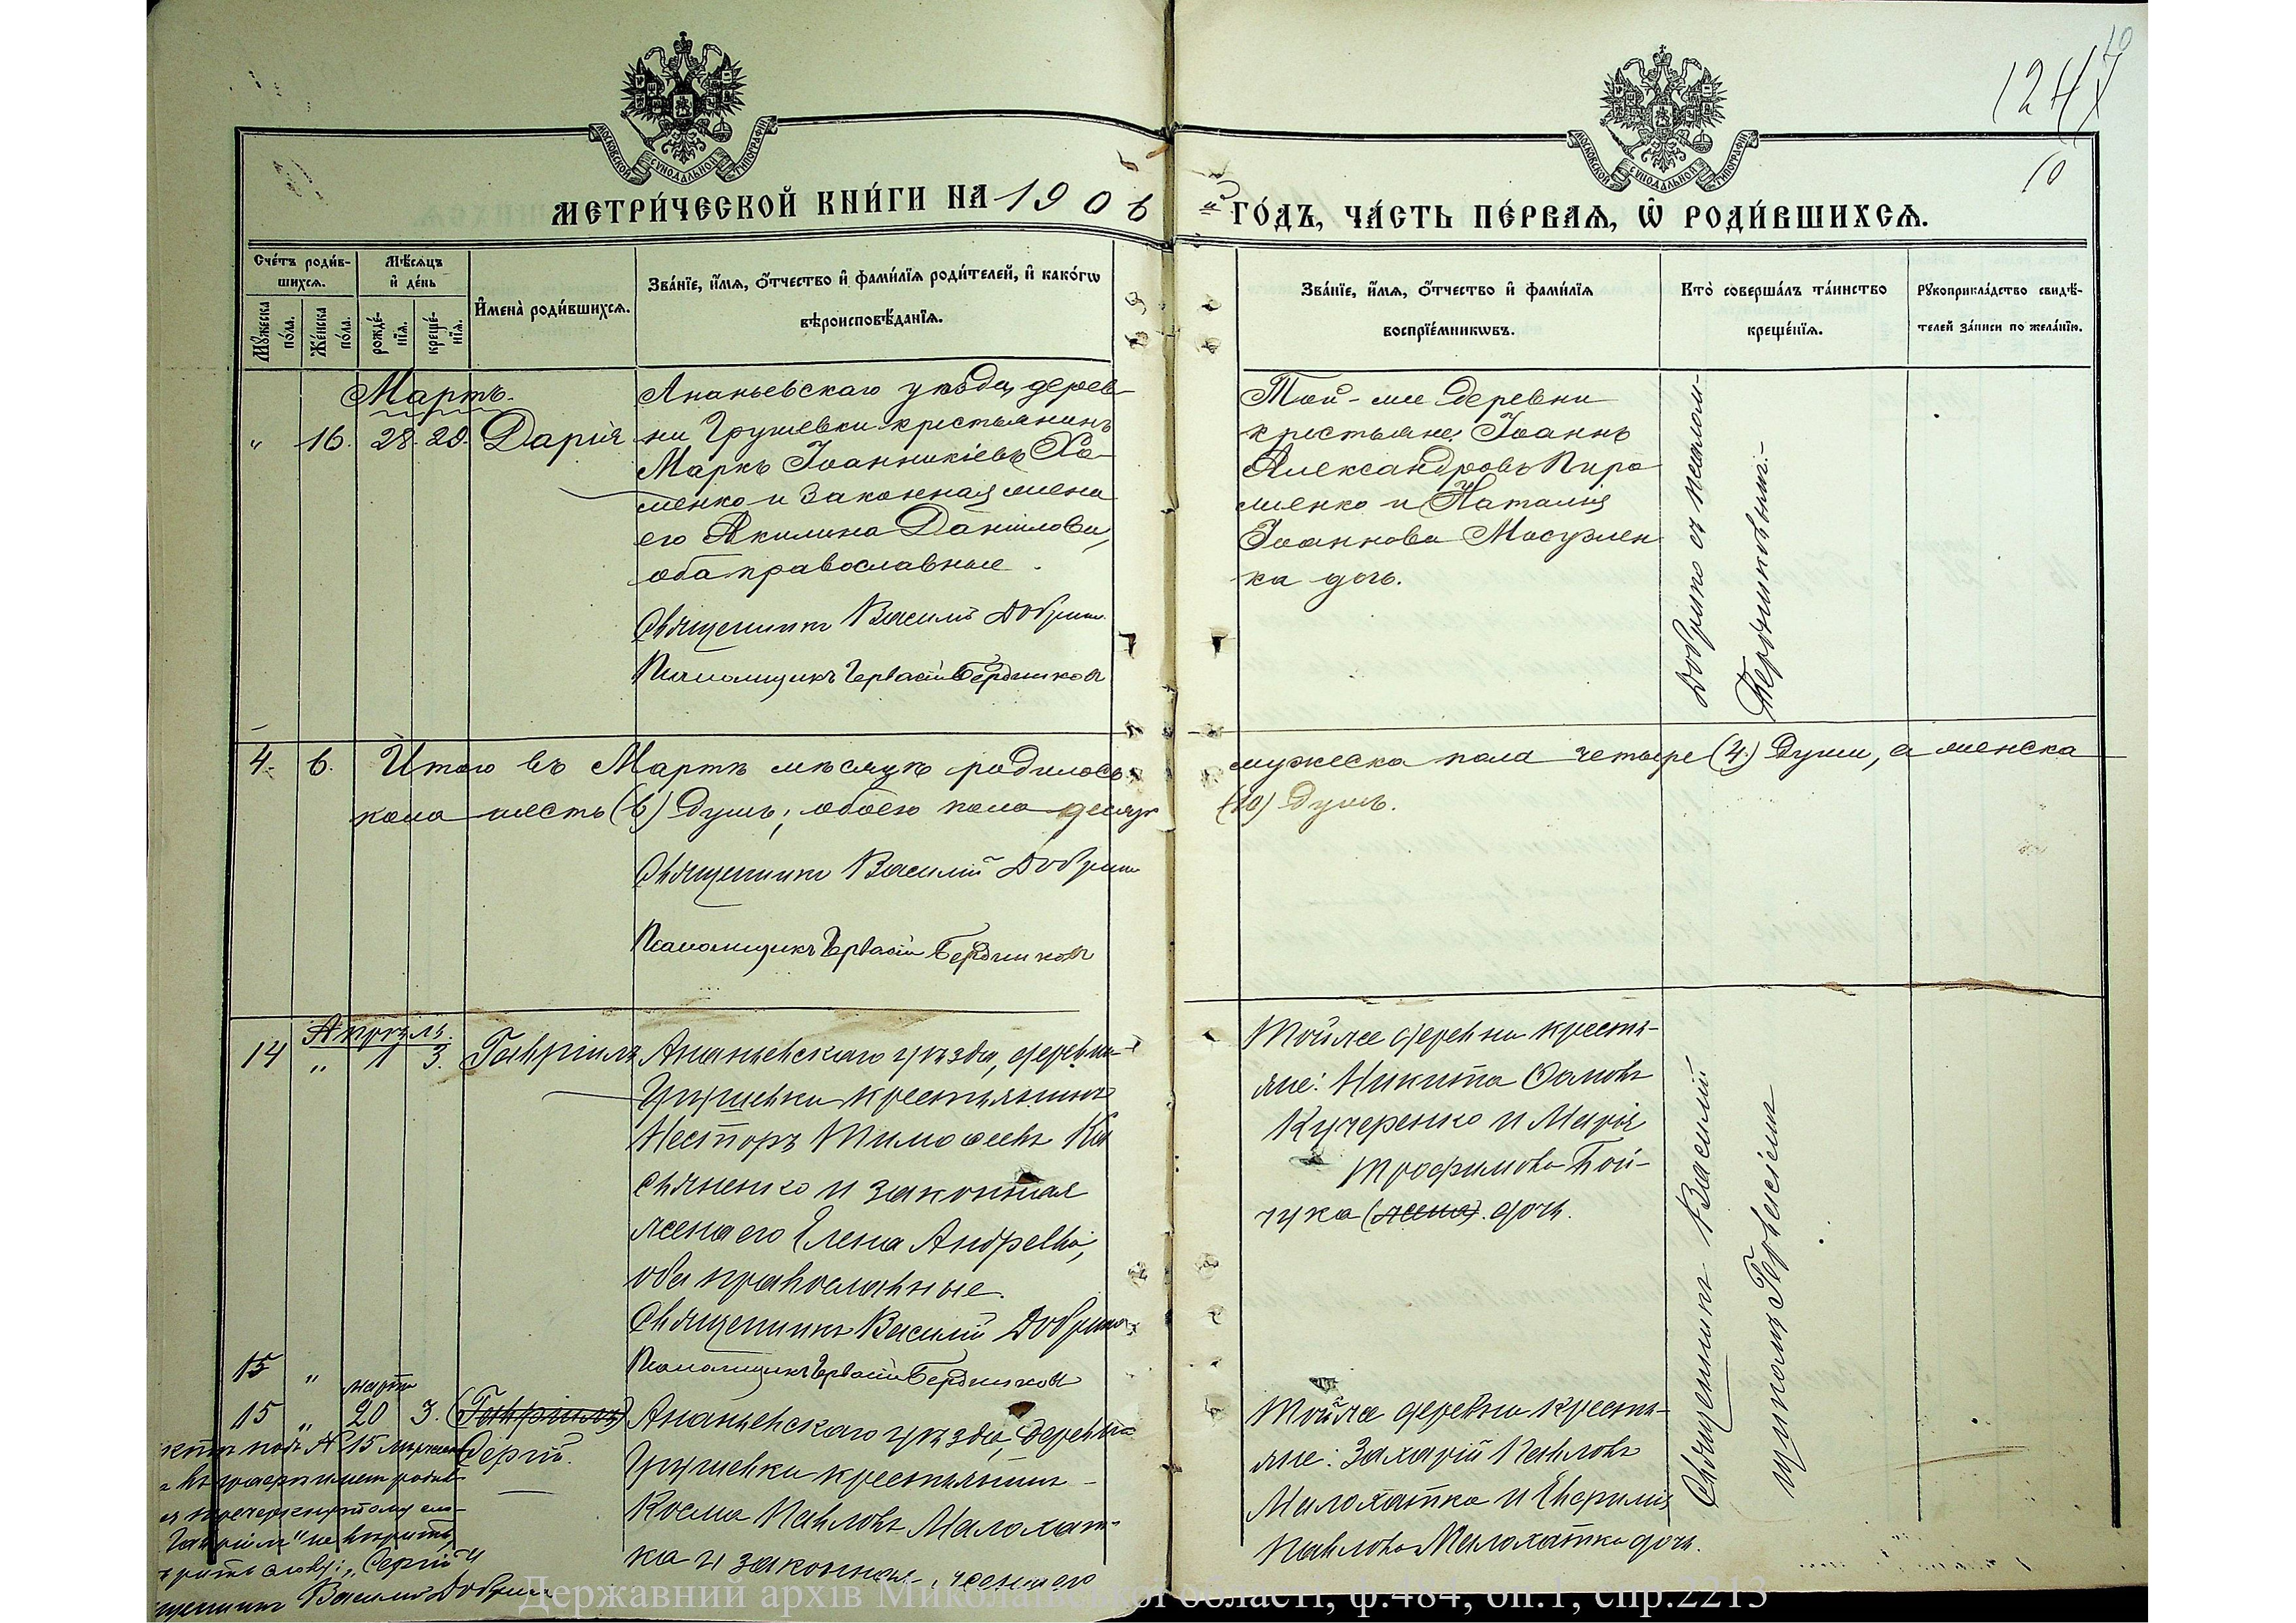 124
10
МОСКОВСКОЙ СѴНОДАЛЬНОЙ ТИПОГРАФІИ
МОСКОВСКОЙ СѴНОДАЛЬНОЙ ТИПОГРАФІИ
МЕТРИ́ЧЕСКОЙ КНИ́ГИ НА 1906 й ГО́ДЪ, ЧА́СТЬ ПЕ́РВАѦ, Ѡ РОДИ́ВШИХСѦ.
Сче́тъ роди́в-
шихсѧ.
Мꙋжеска по́ла.
Же́нска по́ла.
Мѣ́сѧцъ
и҆ де́нь
рожде́-
нїѧ.
креще́-
нїѧ.
И҆мена̀ роди́вшихсѧ.
Зва́нїе, и҆́мѧ, ѻ҆́тчество и҆ фами́лїѧ роди́телей, и҆ како́гѡ
вѣроисповѣ́данїѧ.
Зва́нїе, и҆́мѧ, ѻ҆́тчество и҆ фами́лїѧ
воспрїе́мникѡвъ.
Кто̀ соверша́лъ та́инство
креще́нїѧ.
Рꙋкоприкла́дство свидѣ́-
телей за́писи по жела́нїю.
Мартъ.
" 16. 28. 28. Дарія
Ананьевскаго уѣзда, дерев-
ни Грушевки крестьянинъ
Маркъ Іоанникіевъ Хо-
менко и законная жена
его Акилина Даніилова,
оба православные.
Священникъ Василій Добрин
Псаломщикъ Гервасій Бердников
Той-же деревни
крестьяне: Іоаннъ
Александровъ Пиро
женко и Наталія
Іоаннова
ка дочь.
съ псалом-
Бердниковымъ.
4. 6. Итого въ Мартѣ мѣсяцѣ родилось мужеска пола четыре (4) души, а женска
пола шесть (6) душъ; обоего пола десять (10) душъ.
Священникъ Василій Добрин
Псаломщикъ Гервасій Бердников
Апрѣль.
14 " 1 3. Гавріилъ
Ананьевскаго уѣзда, деревни
Грушевки крестьянинъ
Несторъ Тимоѳеевъ Ка
сьяненко и законная
жена его Елена Андреева,
оба православные.
Священникъ Василій Добрин
Псаломщикъ Гервасій Бердников
Тойже деревни кресть-
яне: Никита
Кучеренко и Марія
Трофимова Бой-
чука (жена). дочь.
Священникъ Василій
15 "
марта
15 " 20 3. (Гавріилъ)
Сергій.
Ананьевскаго уѣзда, деревни
Грушевки крестьянинъ
Косма Павловъ Малохат-
ка и законная жена его
Тойже деревни кресть-
яне: Захарій Павловъ
Малохатка и
Павлова Малохатка дочь.
подъ № 15
Гавріилъ" не вѣрить,
"Сергій"
Василій Добрин
Державний архів Миколаївської області, ф.484, оп.1, спр.2213